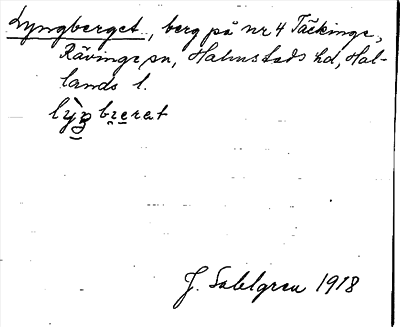 Lyngberget, berg på nr 4 Täckinge,
Rävinge sn, Halmstads hd, Hal-
lands l.
J. Sahlgren 1918